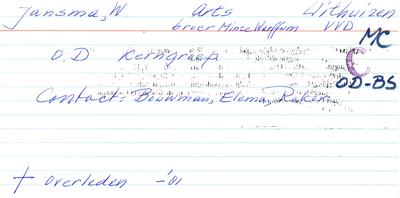 Jansma, W Arts Uithuizen
broer Minze Warffum VVD
MC
O.D Kerngroep
OD-BS
Contact: Bouwman, Elema, Ruken
† overleden -'01